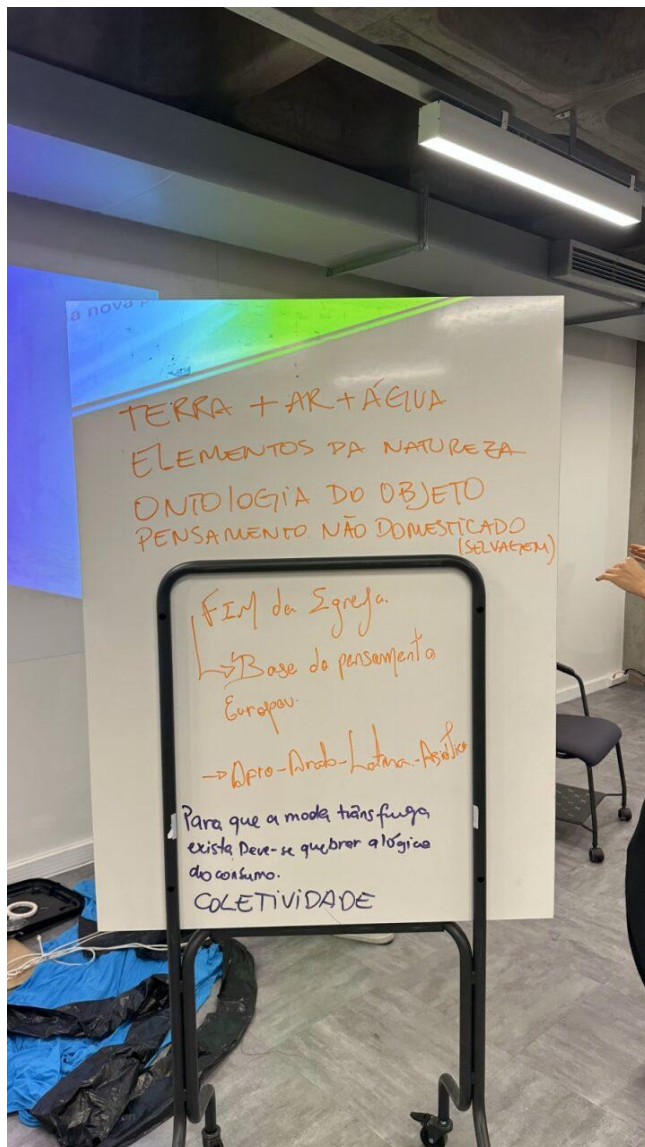 a nova
TERRA + AR + ÁGUA
ELEMENTOS DA NATUREZA
ONTOLOGIA DO OBJETO
PENSAMENTO NÃO DOMESTICADO
(SELVAGEM)
FIM da Igreja.
→ Base do pensamento
Europeu.
→ Afro-Arab-Latina-Asiático
Para que a moda transfuga
exista Deve-se quebrar a lógica
do consumo.
COLETIVIDADE